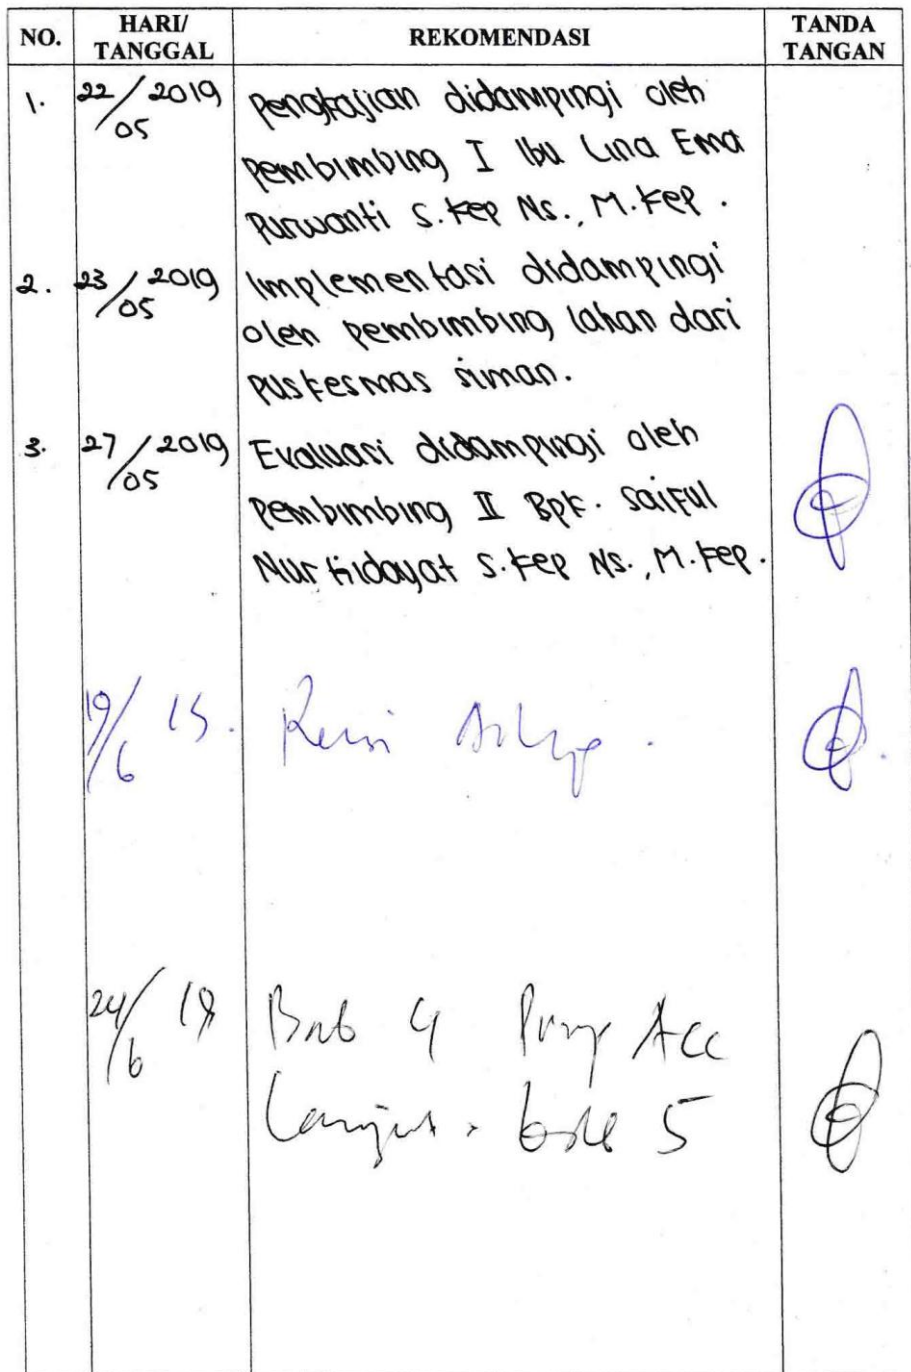 NO. HARI/ TANGGAL REKOMENDASI TANDA TANGAN
1. 22/05 2019 Pengkajian didampingi oleh
pembimbing I Ibu Lina Ema
Purwanti S.Kep Ns., M.Kep.
2. 23/05 2019 Implementasi didampingi
oleh pembimbing lahan dari
puskesmas siman.
3. 27/05 2019 Evaluasi didampingi oleh
Pembimbing II Bpk. Saiful
Nur Hidayat S.Kep Ns., M.Kep.
19/6
24/6 19 Bab 4 Acc
Lanjut 5